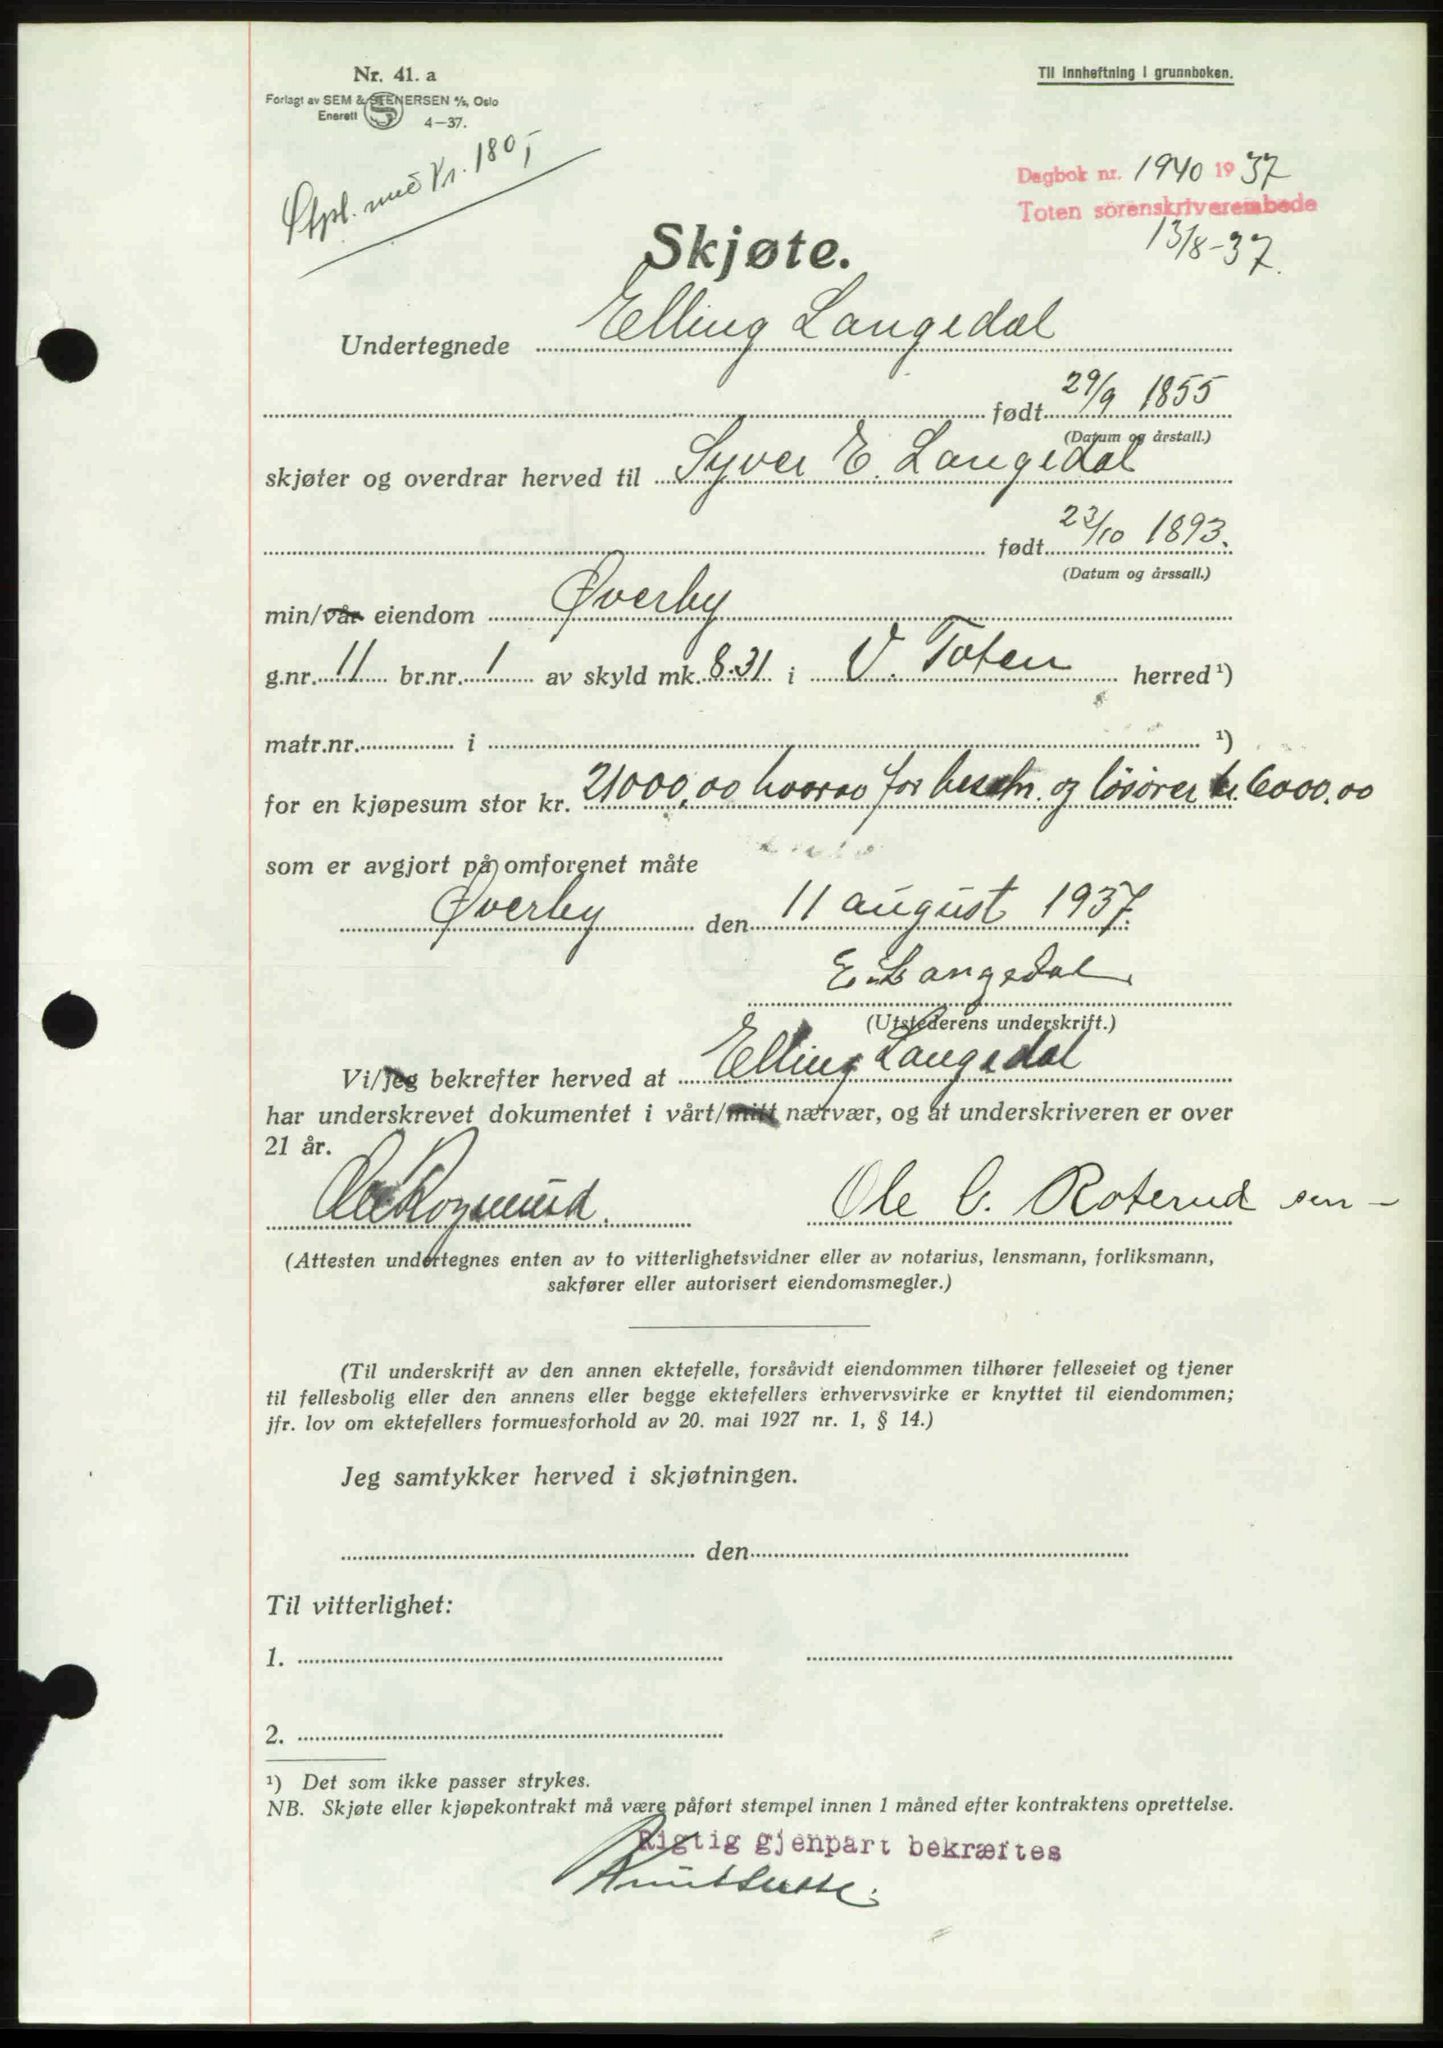 Nr. 41. a
Forlagt av SEM & STENERSEN A/S, Oslo
Enerett
4-37.
Til innheftning i grunnboken.
Stpl. med Kr. 180,-
Dagbok nr. 1940 1937
Toten sorenskriverembede
13/8-37.
Skjøte.
Undertegnede Elling Langedal
født 29/9 1855
(Datum og årstall.)
skjøter og overdrar herved til Syver E. Langedal
født 23/10 1893.
(Datum og årssall.)
min/vår eiendom Øverby
g.nr. 11 br.nr. 1 av skyld mk. 8.31 i V. Toten herred¹)
matr.nr. i ¹)
for en kjøpesum stor kr. 21000,00 hvorav for besetn. og løsøre kr. 6000,00
som er avgjort på omforenet måte
Øverby den 11 august 1937.
E. Langedal
(Utstederens underskrift.)
Vi/jeg bekrefter herved at Elling Langedal
har underskrevet dokumentet i vårt/mitt nærvær, og at underskriveren er over
21 år.
Ole C. Roterud sen
(Attesten undertegnes enten av to vitterlighetsvidner eller av notarius, lensmann, forliksmann,
sakfører eller autorisert eiendomsmegler.)
(Til underskrift av den annen ektefelle, forsåvidt eiendommen tilhører felleseiet og tjener
til fellesbolig eller den annens eller begge ektefellers erhvervsvirke er knyttet til eiendommen;
jfr. lov om ektefellers formuesforhold av 20. mai 1927 nr. 1, § 14.)
Jeg samtykker herved i skjøtningen.
den
Til vitterlighet:
1.
2.
¹) Det som ikke passer strykes.
NB. Skjøte eller kjøpekontrakt må være påført stempel innen 1 måned efter kontraktens oprettelse.
Rigtig gjenpart bekræftes